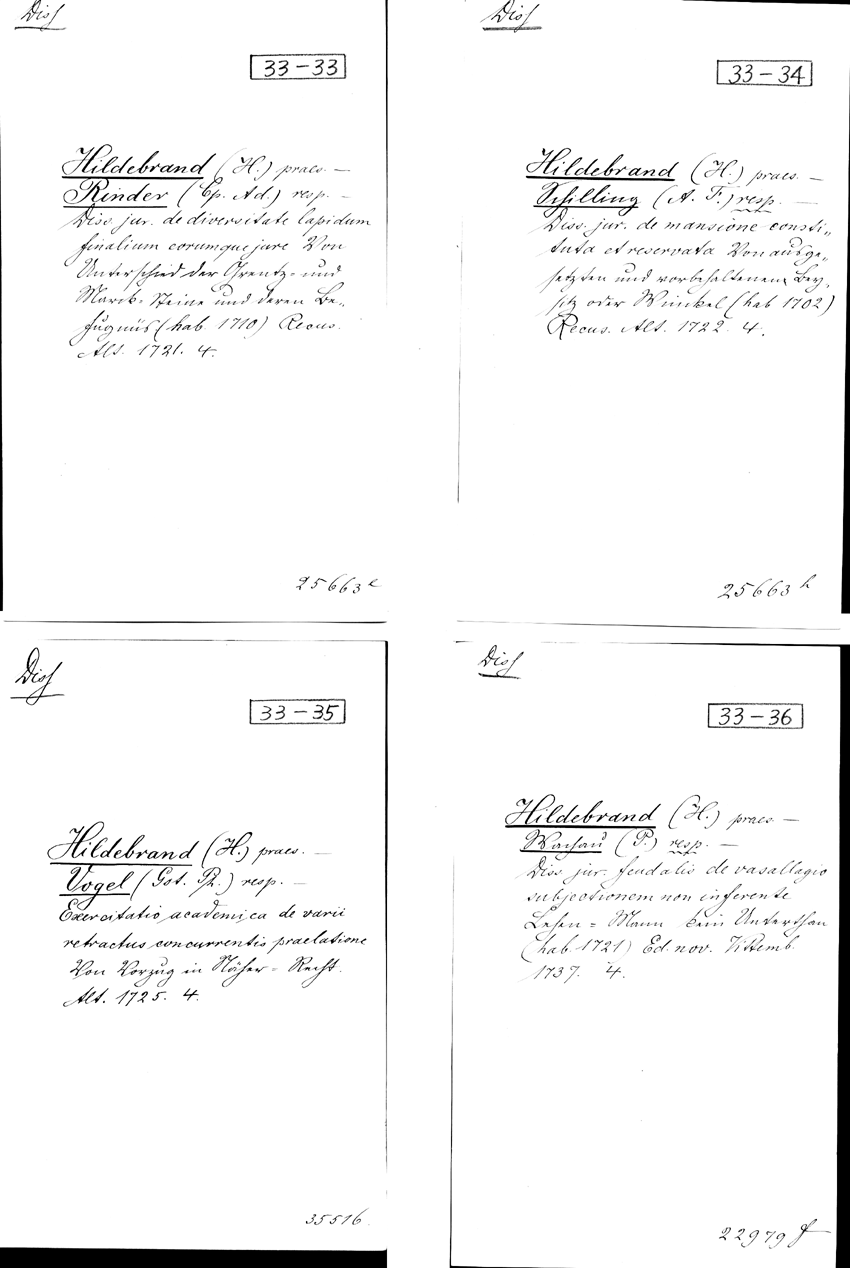 Diss
33-33
Hildebrand (H.) praes. —
Rinder (Cp. Ad.) resp. —
Diss. jur. de diversitate lapidum
finalium eorumque jure Von
Unterschied der Grentz- und
Marck-Steine und deren Be-
fugnüs (hab. 1710) Recus.
Alt. 1721. 4.
25663
Diss
33-34
Hildebrand (H.) praes. —
Schilling (A. F.) resp. —
Diss. jur. de mansione consti-
tuta et reservata Von ausge-
setzten und vorbehaltenem Bey-
sitz oder Winckel (hab 1702)
Recus. Alt. 1722. 4.
25663 h
Diss
33-35
Hildebrand (H.) praes. —
Vogel (Got. Ph.) resp. —
Exercitatio academica de varii
retractus concurrentis praelatione
Von Vorzug in Näher-Recht.
Alt. 1725. 4.
35516
Diss
33-36
Hildebrand (H.) praes. —
Wachau (P.) resp. —
Diss. jur. feudalis de vasallagio
subjectionem non inferente
Lehen-Mann kein Unterthan
(hab. 1721) Ed. nov. Vittemb.
1737. 4.
22979 f